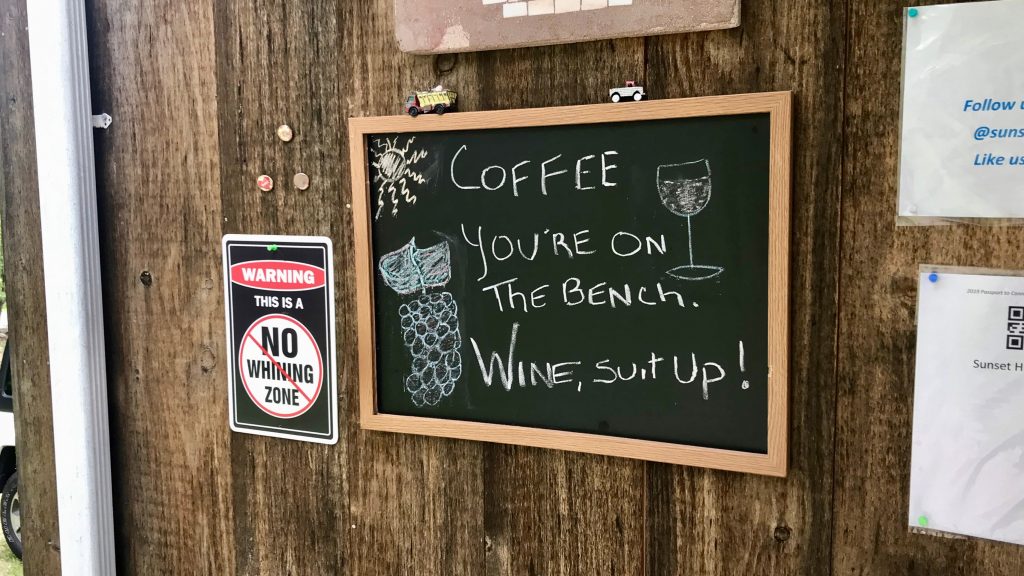 WARNING
THIS IS A
NO
WHINING
ZONE
COFFEE
YOU'RE ON
THE BENCH.
WINE, SUIT UP!
Follow
@suns
Like us
2019 Passport to
Sunset H